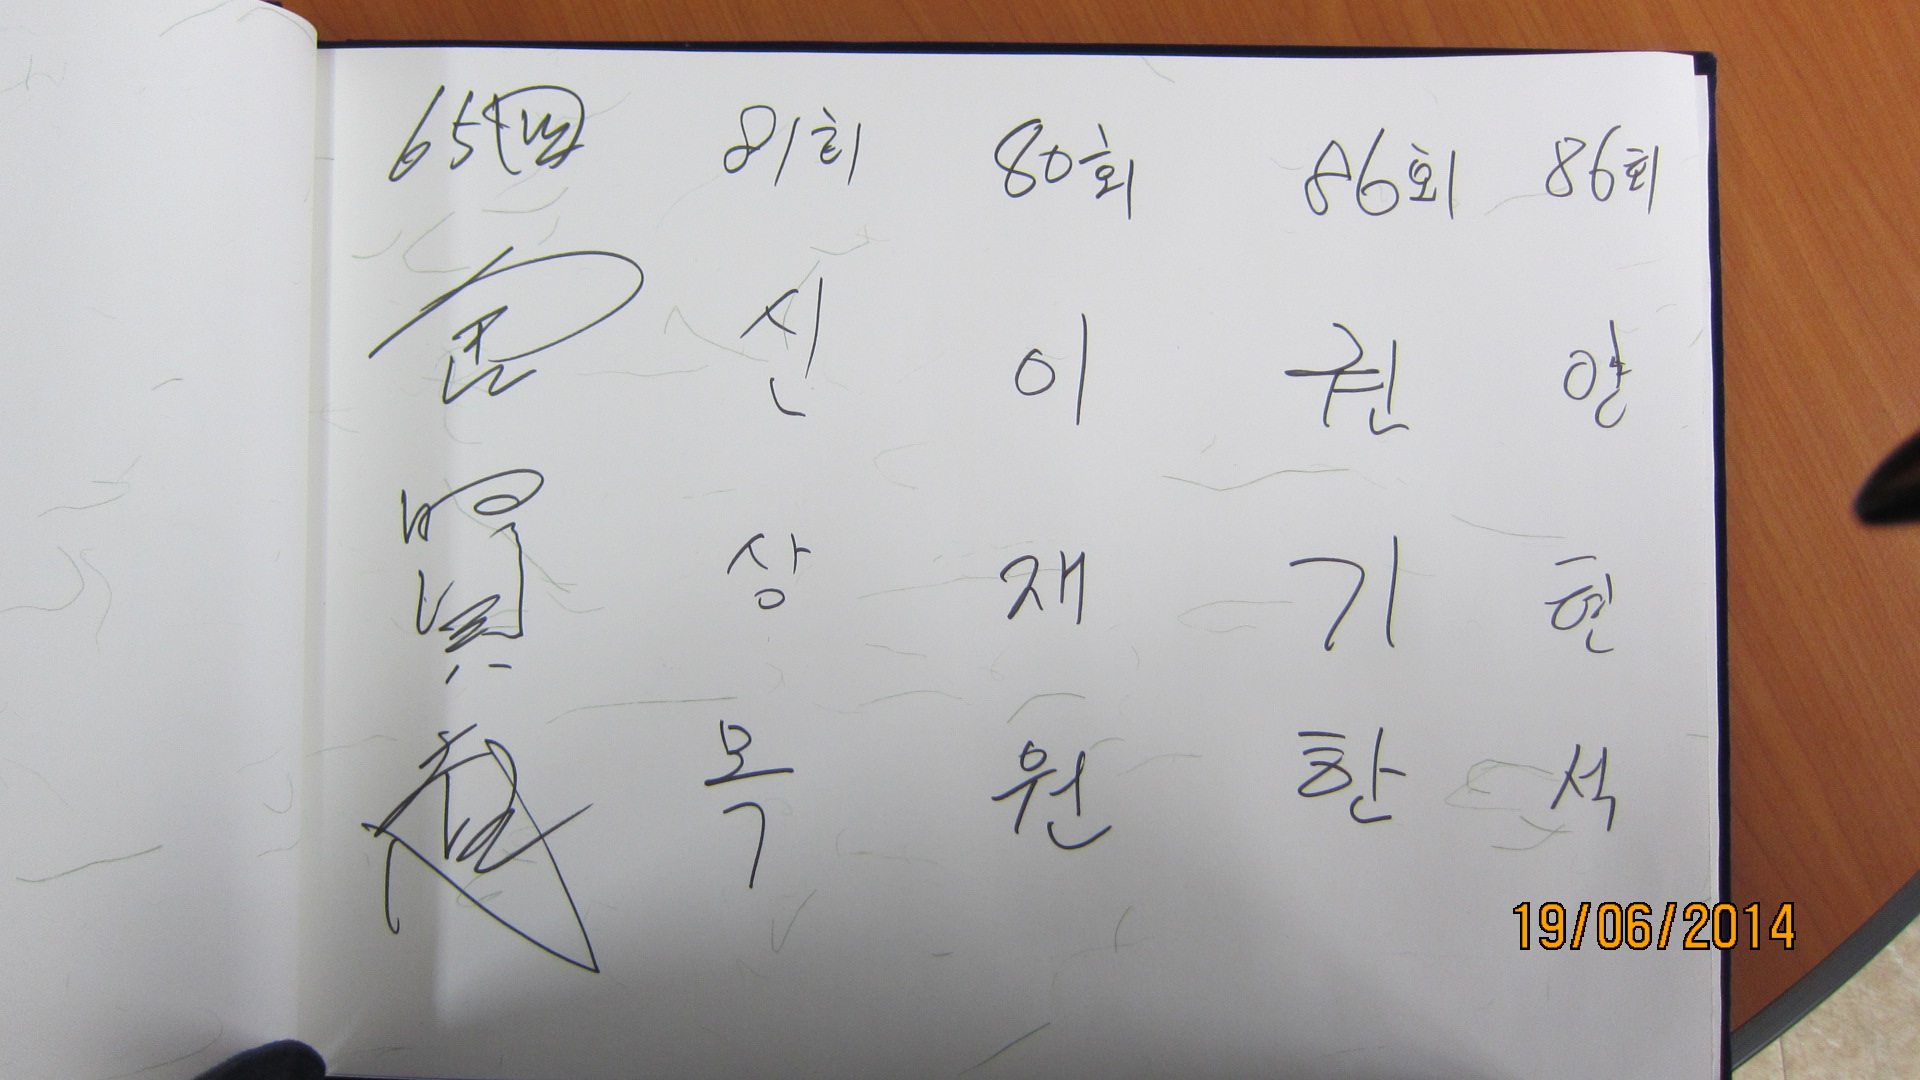 65回 81회 80회 86회 86회
신 이 권 안
상 재 기 현
목 원 한 석
19/06/2014